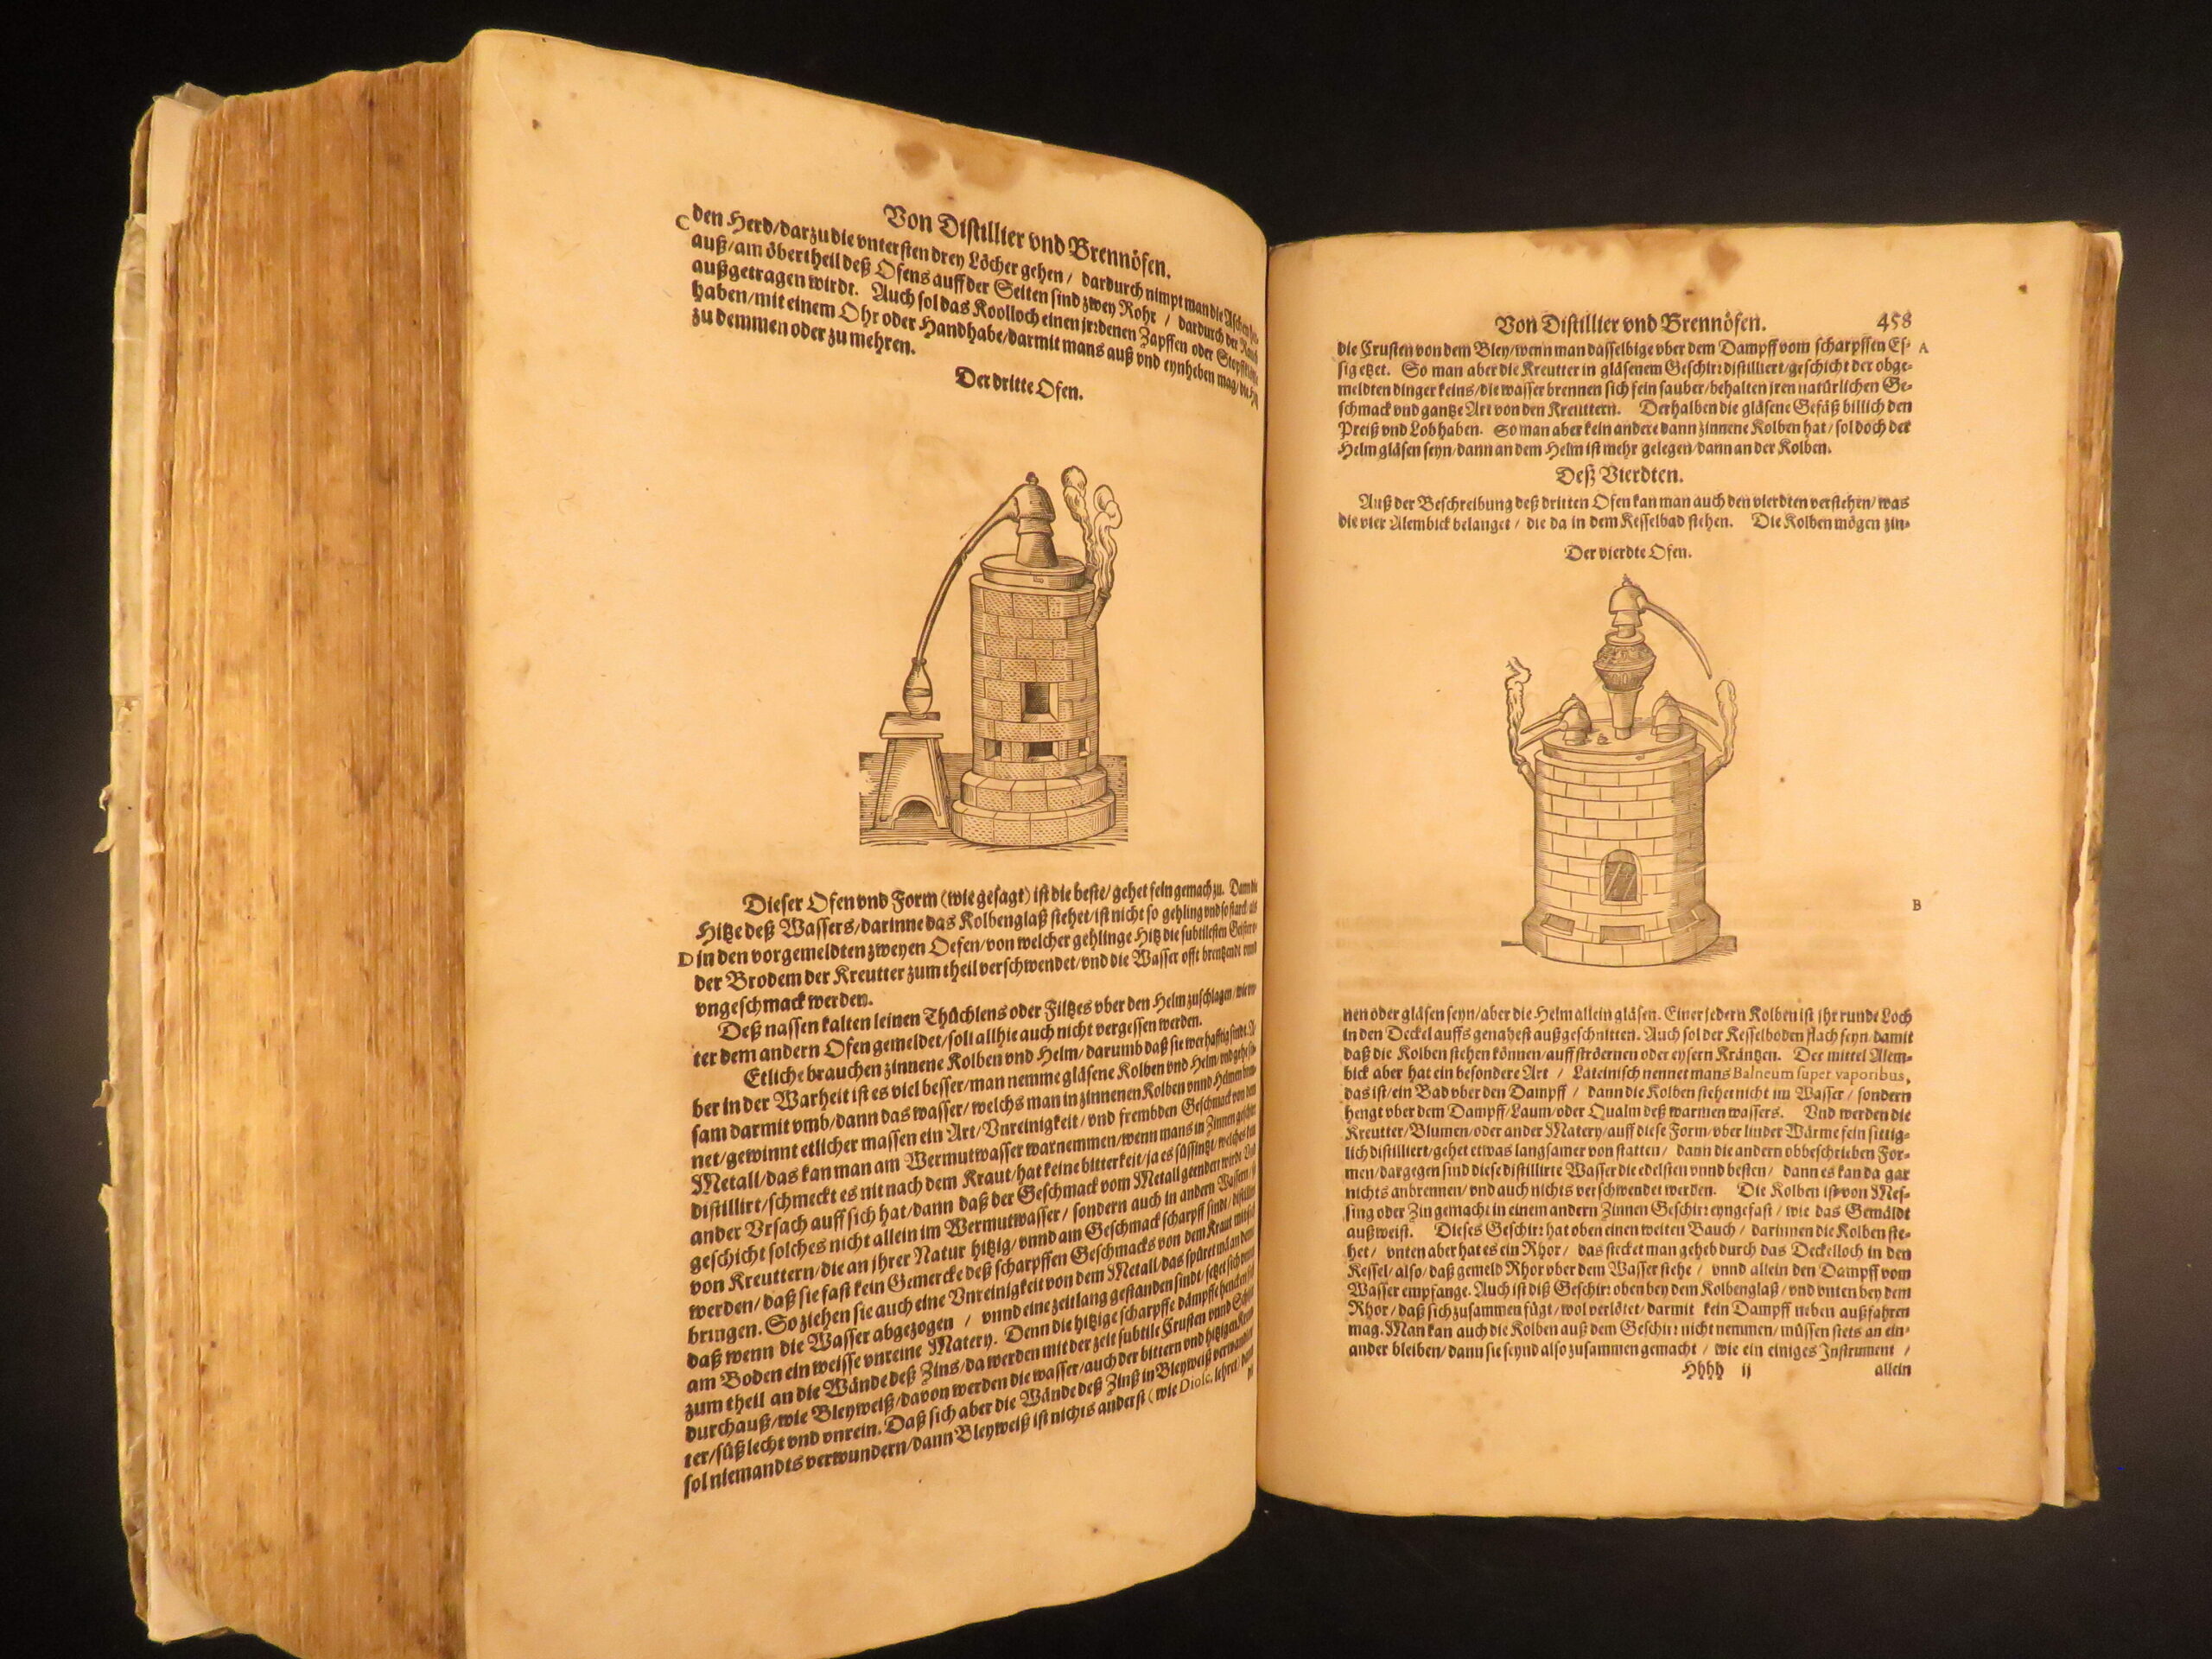 Von Distillier vnd Brennöfen.
C den Herd/darzu die vntersten drey Löcher gehen/ dardurch nimpt man die Aschen
auß/am öbertheil deß Ofens auff der Seiten sind zwey Rohr / dardurch der Rauch
außgetragen wirdt. Auch sol das Koolloch einen jrrdenen Zapffen oder
haben/mit einem Ohr oder Handhabe/darmit mans auß vnd eynheben mag/die
zu demmen oder zu mehren.
Der dritte Ofen.
Dieser Ofen vnd Form (wie gesagt) ist die beste/gehet fein gemach zu. Dann die
Hitze deß Wassers/darinne das Kolbenglaß stehet/ist nicht so gehling vnd so starck als
D in den vorgemeldten zweyen Oefen/von welcher gehlinge Hitz die subtilesten
der Brodem der Kreutter zum theil verschwendet/vnd die Wasser offt brentzendt vnnd
vngeschmack werden.
Deß nassen kalten leinen Thüchlens oder Filtzes vber den Helm zuschlagen/
ter dem andern Ofen gemeldet/soll allhie auch nicht vergessen werden.
Etliche brauchen zinnene Kolben vnd Helm/darumb daß sie werhafftig sindt.
ber in der Warheit ist es viel besser/man nemme gläsene Kolben vnd Helm/
sam darmit vmb/dann das wasser/welchs man in zinnenen Kolben vnnd Helmen
net/gewinnt etlicher massen ein Art/Vnreinigkeit/vnd frembden Geschmack von dem
Metall/das kan man am Wermutwasser warnemmen/wenn mans in Zinnen
distillirt/schmeckt es nit nach dem Kraut/hat keine bitterkeit/ja es süssintzt/welches
ander Vrsach auff sich hat/dann daß der Geschmack vom Metall geendert wirdt.
geschicht solches nicht allein im Wermutwasser/ sondern auch in andern Wassern/
von Kreuttern/die an jhrer Natur hitzig/vnnd am Geschmack scharpff sindt/
werden/daß sie fast kein Gemercke deß scharpffen Geschmacks von dem Kraut mit sich
bringen. So ziehen sie auch eine Vnreinigkeit von dem Metall/das spüret man an dem
daß wenn die Wasser abgezogen / vnnd eine zeitlang gestanden sindt/setzet sich
am Boden ein weisse vnreine Matery. Denn die hitzige scharpffe dämpffe
zum theil an die Wände deß Zins/da werden mit der zeit subtile Crusten vnnd
durchauß/wie Bleyweiß/davon werden die wasser/auch der bittern vnd hitzigen
ter/süßlecht vnd vnrein. Daß sich aber die Wände deß Zinß in Bleyweiß
sol niemandts verwundern/dann Bleyweiß ist nichts anderst (wie Diosc. lehret)
Von Distillier vnd Brennöfen. 458
die Crusten von dem Bley/wenn man dasselbige vber dem Dampff vom scharpffen Es- A
sig etzet. So man aber die Kreutter in gläsenem Geschirr distilliert/geschicht der obge-
meldten dinger keins/die wasser brennen sich fein sauber/behalten jren natürlichen Ge-
schmack vnd gantze Art von den Kreuttern. Derhalben die gläsene Gefäß billich den
Preiß vnd Lob haben. So man aber kein andere dann zinnene Kolben hat/ sol doch der
Helm gläsen seyn/dann an dem Helm ist mehr gelegen/dann an der Kolben.
Deß Vierdten.
Auß der Beschreibung deß dritten Ofen kan man auch den vierdten verstehen/was
die vier Alembick belanget / die da in dem Kesselbad stehen. Die Kolben mögen zin-
Der vierdte Ofen.
B
nen oder gläsen seyn/aber die Helm allein gläsen. Einer jedern Kolben ist jhr runde Loch
in den Deckel auffs genahest außgeschnitten. Auch sol der Kesselboden flach seyn/damit
daß die Kolben stehen können/auff ströernen oder eysern Kräntzen. Der mittel Alem-
bick aber hat ein besondere Art / Lateinisch nennet mans Balneum super vaporibus,
das ist/ein Bad vber den Dampff / dann die Kolben stehet nicht im Wasser / sondern
hengt vber dem Dampff/Laum/oder Qualm deß warmen wassers. Vnd werden die
Kreutter/Blumen/oder ander Matery/auff diese Form/vber linder Wärme fein sittig-
lich distilliert/gehet etwas langsamer von statten / dann die andern obbeschrieben For-
men/dargegen sind diese distillirte Wasser die edelsten vnnd besten / dann es kan da gar
nichts anbrennen/ vnd auch nichts verschwendet werden. Die Kolben ist von Mes-
sing oder Zin gemacht in einem andern Zinnen Geschirr eyngefast / wie das Gemäldt
außweist. Dieses Geschirr hat oben einen weiten Bauch / darinnen die Kolben ste-
het/ vnten aber hat es ein Rhor / das stecket man geheb durch das Deckelloch in den
Kessel/also/daß gemeld Rhor vber dem Wasser stehe / vnnd allein den Dampff vom
Wasser empfange. Auch ist diß Geschirr oben bey dem Kolbenglaß/ vnd vnten bey dem
Rhor / daß sich zusammen fügt/ wol verlötet/darmit kein Dampff neben außfahren
mag. Man kan auch die Kolben auß dem Geschirr nicht nemmen/ müssen stets an ein-
ander bleiben/dann sie seynd also zusammen gemacht / wie ein einiges Instrument /
Hhhh ij allein